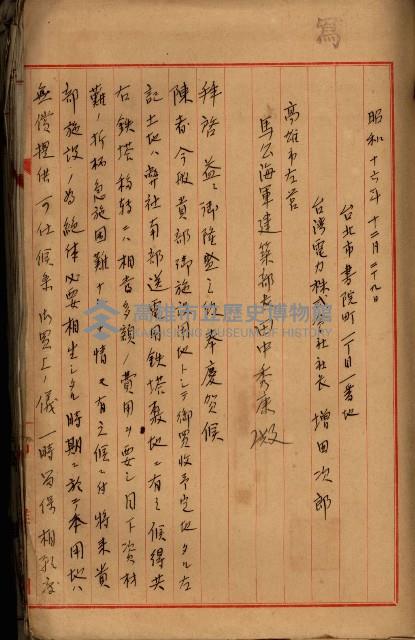 寫
昭和十六年十二月二十九日
台北市書院町一丁目一番地
台灣電力株式會社社長 増田次郎
高雄市左營
馬公海軍建築部長 田中秀康殿
拜啓益々御隆盛之段奉慶賀候
陳者今般貴部御施設用地トシテ御買收予定地タル左
記土地ハ弊社南部送電用鉄塔敷地ニ有之候得共
右鉄塔移轉ニハ相當多額ノ費用ヲ要シ且下資材
難ノ折柄急施困難ナル事情モ有之候ニ付將来貴
部施設ノ為絶体必要相生シタル時期ニ於テ本用地ハ
無償提供可仕候条御買上ノ儀一時留保相願度
高雄市立歷史博物館
KAOHSIUNG MUSEUM OF HISTORY